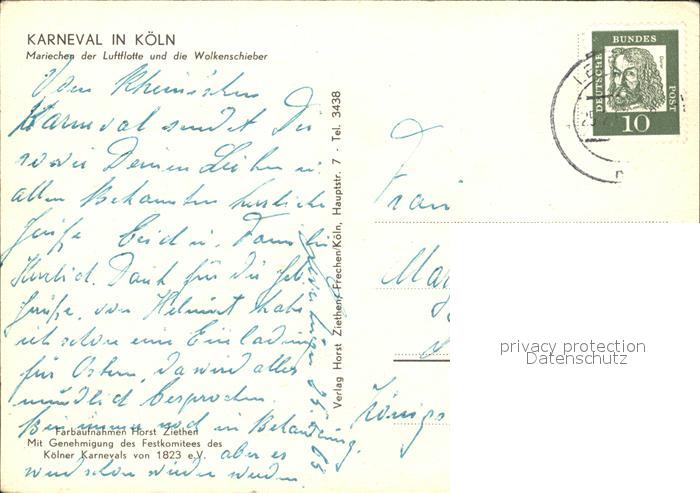 KARNEVAL IN KÖLN
Mariechen der Luftflotte und die Wolkenschieber
Vom Rheinischen
Karneval sendet Dir
sowie Deinen Lieben u.
allen Bekannten herzliche
Grüße
Herzlich. Dank für die Geb.
grüße, von Helmut habe
ich schon eine Einladung
für Ostern, da wird alles
mündlich besprochen.
Bin immer noch in Behandlung,
aber es
wird schon wieder werden.
Farbaufnahmen Horst Ziethen
Mit Genehmigung des Festkomitees des
Kölner Karnevals von 1823 e.V.
Verlag Horst Ziethen, Frechen/Köln, Hauptstr. 7 · Tel. 3438
Frau
Königs
DEUTSCHE BUNDES POST
10
privacy protection
Datenschutz